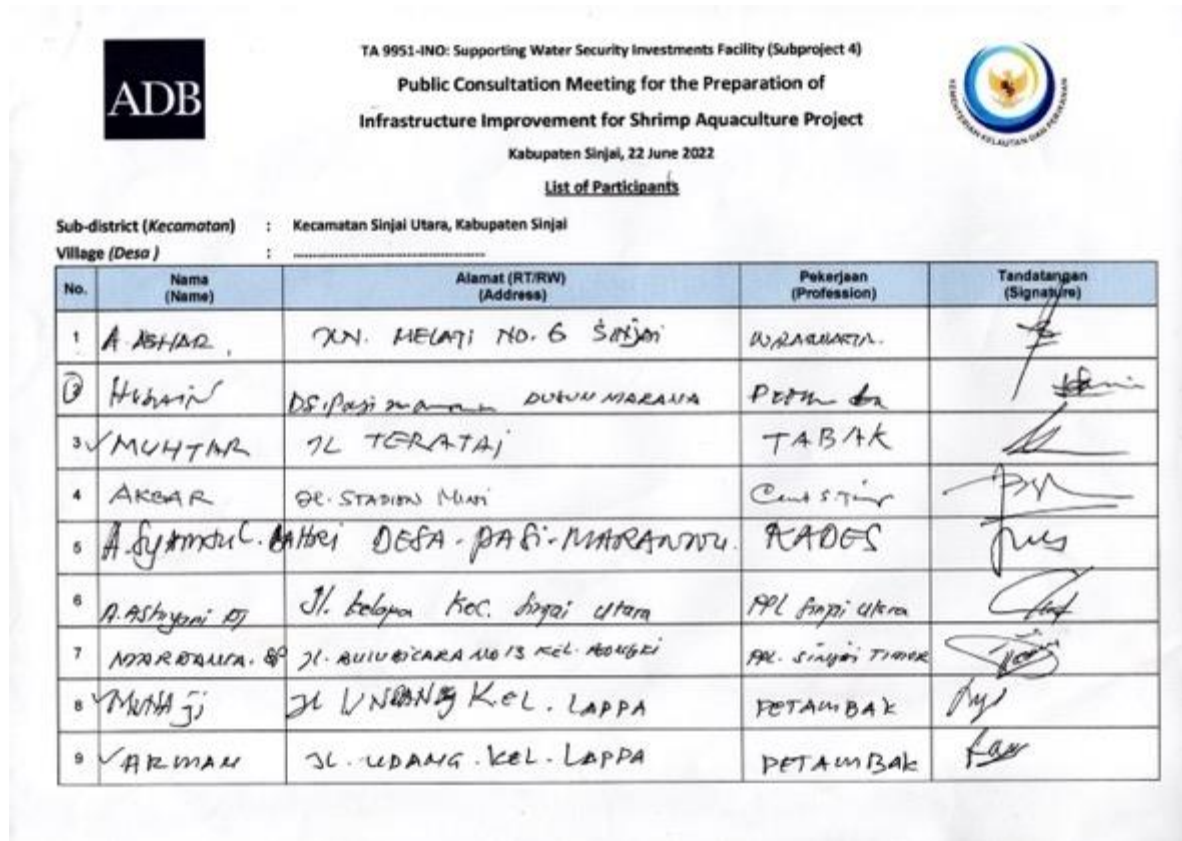 TA 9951-INO: Supporting Water Security Investments Facility (Subproject 4)
ADB
Public Consultation Meeting for the Preparation of
Infrastructure Improvement for Shrimp Aquaculture Project
KEMENTERIAN KELAUTAN DAN PERIKANAN
Kabupaten Sinjai, 22 June 2022
List of Participants
Sub-district (Kecamatan) : Kecamatan Sinjai Utara, Kabupaten Sinjai
Village (Desa ) :
No. Nama (Name) Alamat (RT/RW) (Address) Pekerjaan (Profession) Tandatangan (Signature)
1 A. ASHAR JLN. MELATI NO. 6 SINJAI
2 HUSAIN DUSUN MARANA
3 MUHTAR JL TERATAI TABAK
4 AKBAR JL. STADION MINI
5 A. SYAMSUL. BAHRI DESA - PASI - MARANNU. KADES
6 Jl. kelapa Kec. Sinjai Utara PPL Sinjai Utara
7 JL. BULUBICARA NO 13 KEL. PPL. SINJAI TIMUR
8 JL UNDANG KEL. LAPPA PETAMBAK
9 ARMAN JL. UDANG. KEL. LAPPA PETAMBAK